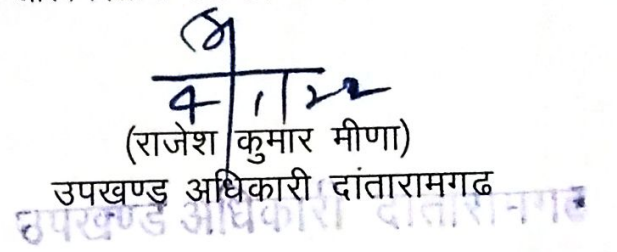 4/1/22
(राजेश कुमार मीणा)
उपखण्ड अधिकारी दांतारामगढ
उपखण्ड अधिकारी दांतारामगढ